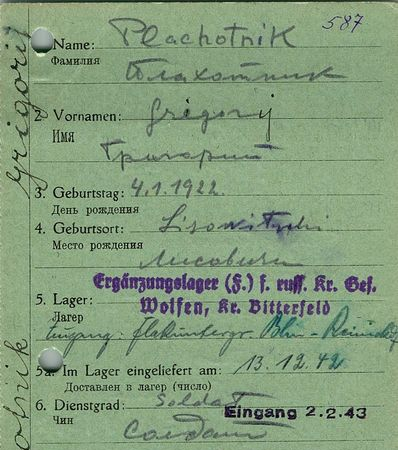 587
1. Name: Plachotnik
Фамилия Плахотник
2. Vornamen: Grégory
Имя
Григорий
3. Geburtstag: 4.1.1922.
День рождения
4. Geburtsort: Lisowitschi
Место рождения
Лисовичи
Ergänzungslager (F.) f. russ. Kr. Gef.
5. Lager: Wolfen, Kr. Bitterfeld
Лагер
5a. Im Lager eingeliefert am: 13.12.42
Доставлен в лагер (число)
6. Dienstgrad: Soldat
Eingang 2.2.43
Чин Солдат
Grigorij